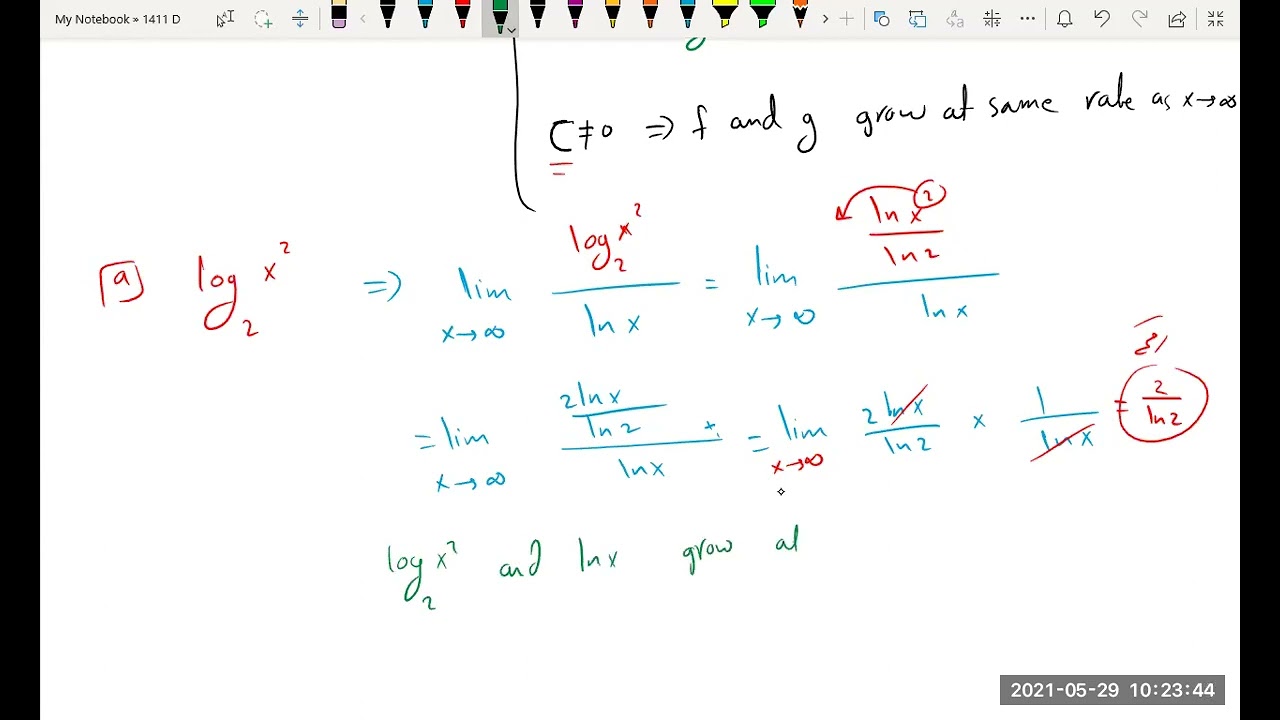 My Notebook » 1411 D
C ≠ 0 ⇒ f and g grow at same rate as x→∞
a log₂ x² ⇒ lim x→∞ (log₂ x²)/(ln x) = lim x→∞ ((ln x²)/(ln 2))/(ln x)
= lim x→∞ ((2 ln x)/(ln 2))/(ln x) = lim x→∞ (2 ln x)/(ln 2) × 1/(ln x) = 2/(ln 2)
log₂ x² and ln x grow at
2021-05-29 10:23:44